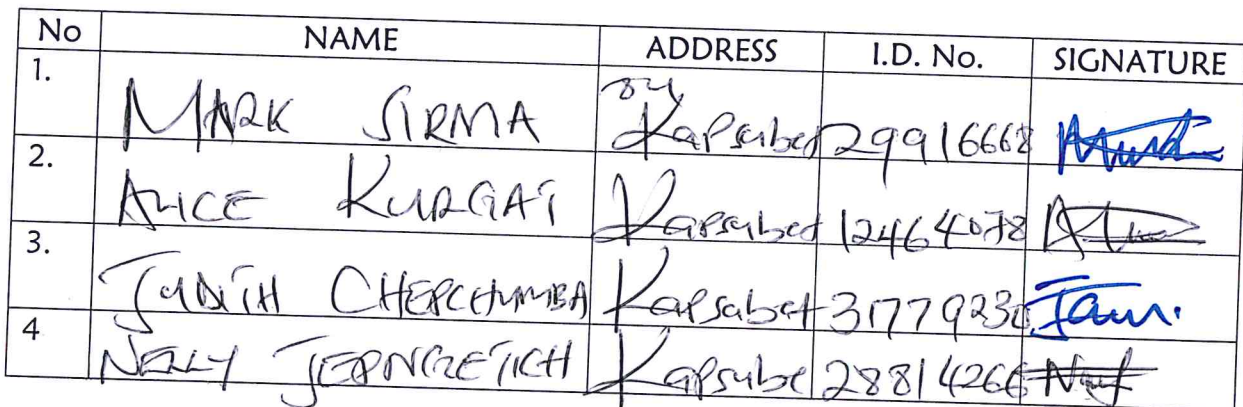 No NAME ADDRESS I.D. No. SIGNATURE
1. MARK SIRMA Kapsabet 29916668
2. ALICE KURGAT Kapsabet 12464078
3. JUDITH CHEPCHUMBA Kapsabet 31779230
4 NELLY JEPNGETICH Kapsabe 28814266